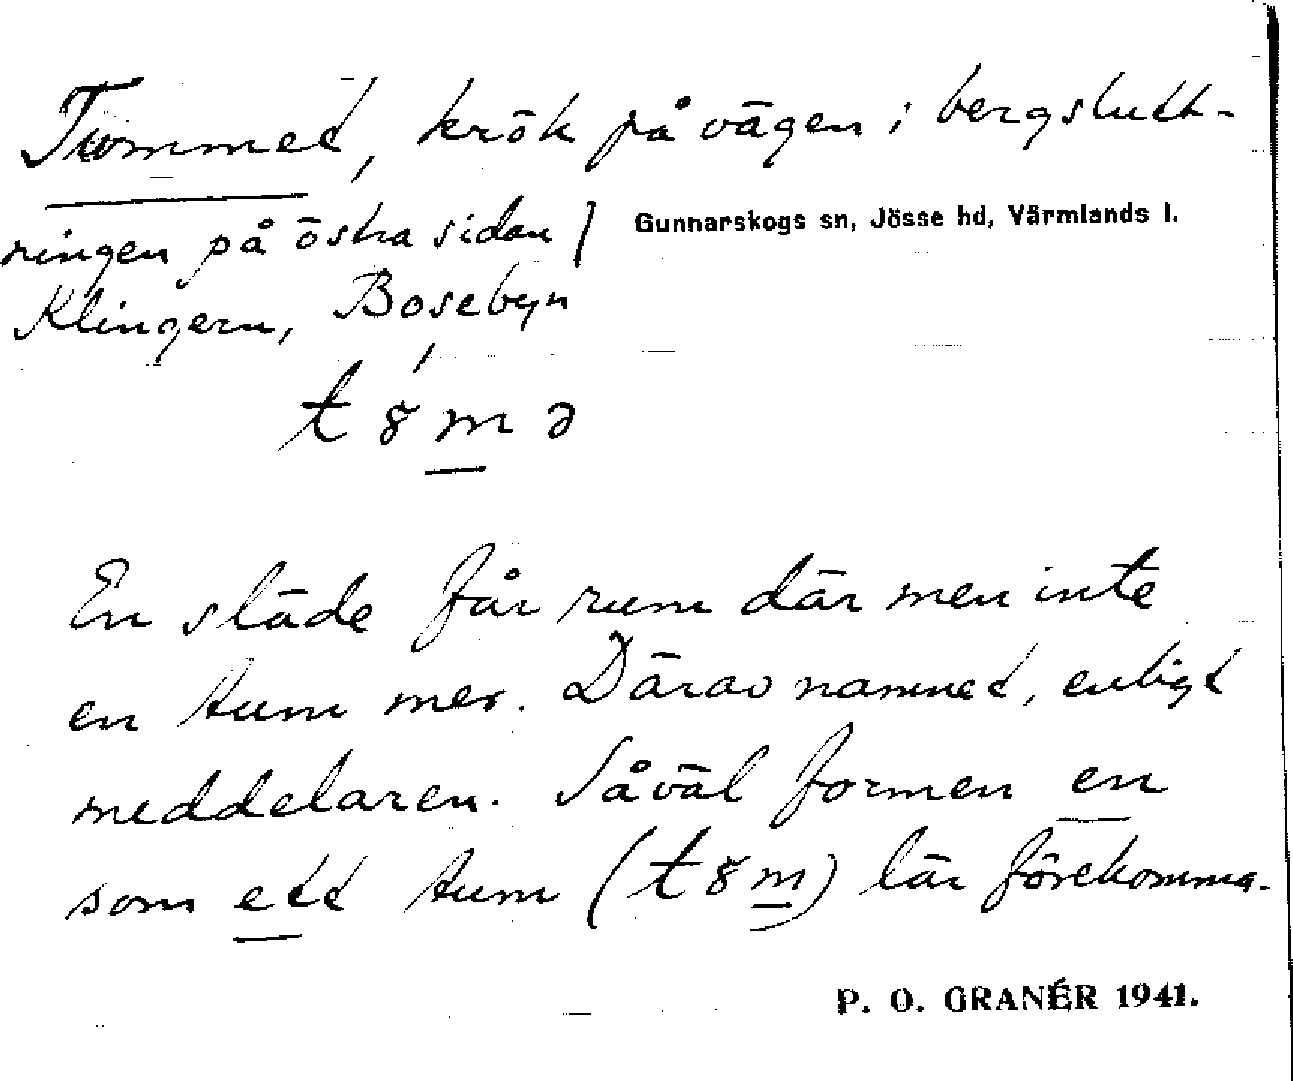 Tummet, krök på vägen i bergslutt-
ningen på östra sidan / Gunnarskogs sn, Jösse hd, Värmlands l.
Klingern, Bosebyn
t8mə
En släde får rum där men inte
en tum mer. Därav namnet, enligt
meddelaren. Såväl formen en
som ett tum (t8m) lär förekomma.
P. O. GRANÉR 1941.